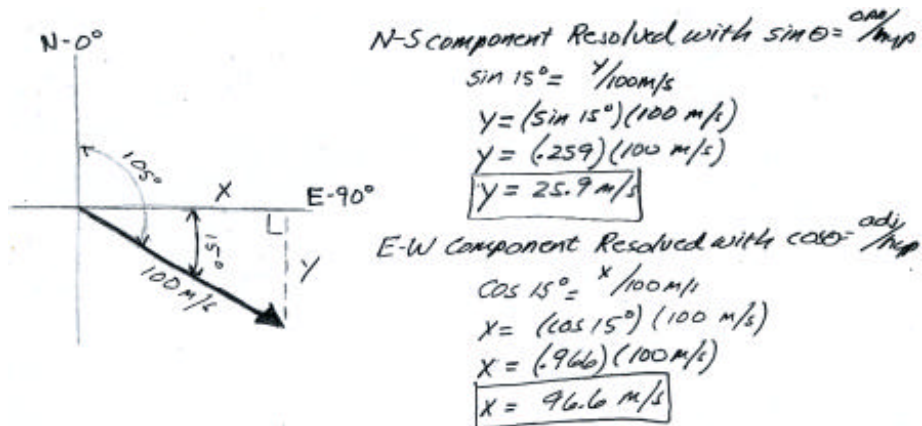 N-0°
105°
X
E-90°
15°
Y
100 m/s
N-S component Resolved with sin θ = opp/hyp
sin 15° = Y/100 m/s
Y = (sin 15°)(100 m/s)
Y = (.259)(100 m/s)
Y = 25.9 m/s
E-W Component Resolved with cos θ = adj/hyp
cos 15° = X/100 m/s
X = (cos 15°)(100 m/s)
X = (.966)(100 m/s)
X = 96.6 m/s